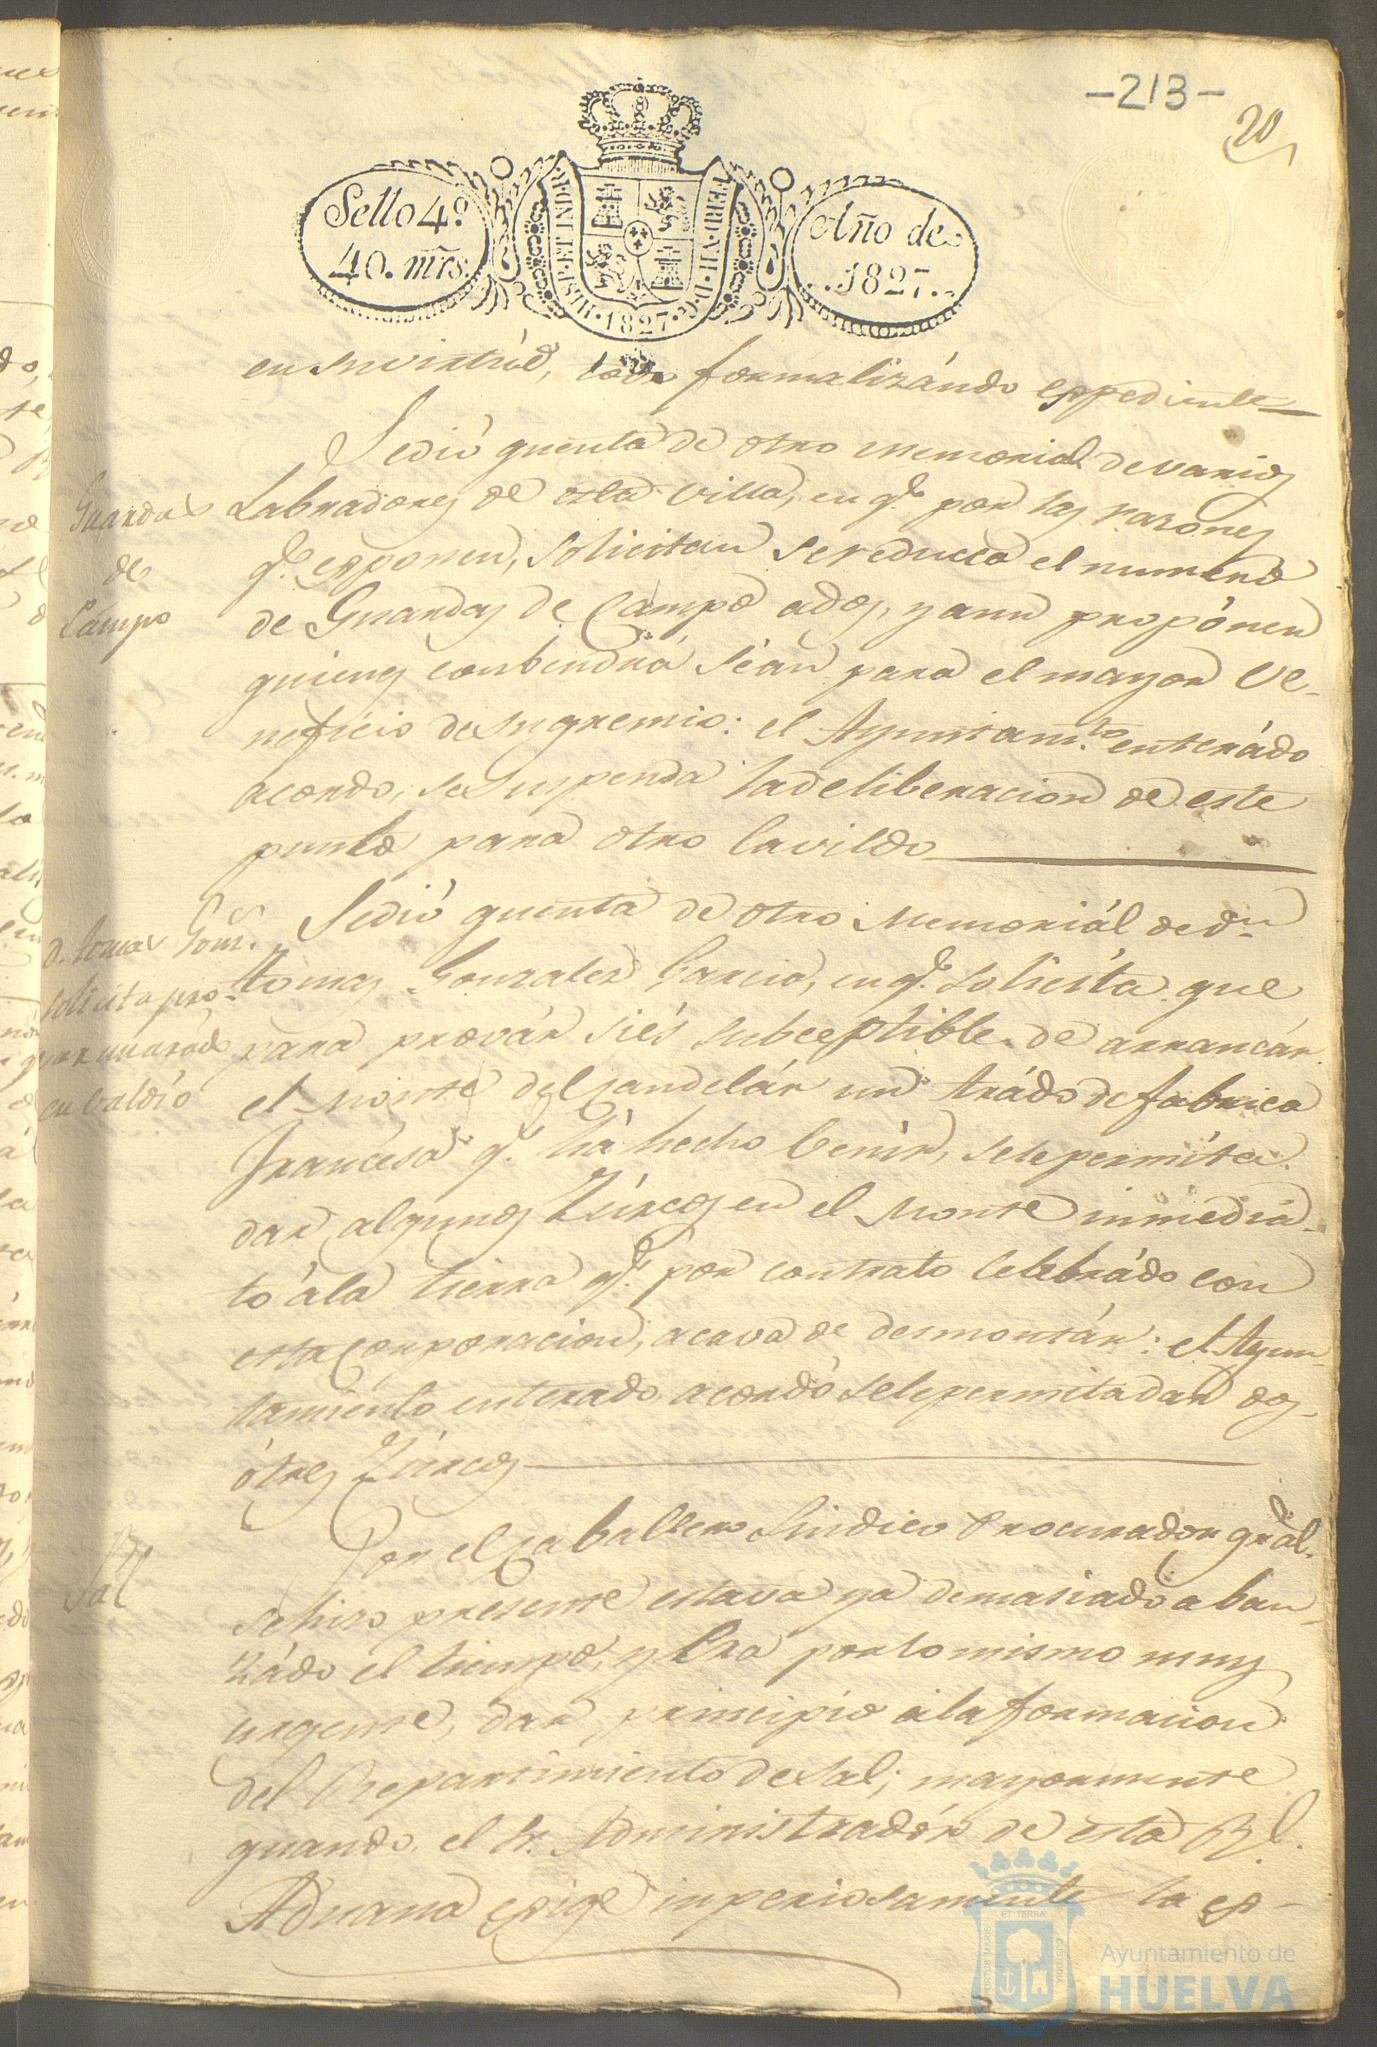 -213-
20
Sello 4º
40. mrs.
HISP. ET IND. R.
FERD. VII. D. G.
1827
Año de
1827.
en su virtúd, formalizándo esppediente
Guardas
de
Campo
Se dió quenta de otro memorial de varios
Labradores de esta villa, en q.e por las razones
q.e esponen, solicitan se reduzca el numero
de Guardas de Campo a dos, y aun propónen
quienes conbendrá séan para el mayor ve-
neficio de su gremio: el Ayuntam.to enterádo
acordo, se suspenda la deliberacion de este
punto para otro Cavildo
d. Tomas Gons.
solicita pro-
var un arado
en valdío
Se dió quenta de otro Memoriál de dn
Tomas Gonzales Garcia, en q.e solicita que
para provár si és subceptible de arrancár
el monte del Candelár un arádo de fabrica
Francésa q.e há hecho benir, se le permíta
dar algunos Zúrcos en el Monte inmediá-
to á la tierra q.e por contrato celebrádo con
esta Corporacion, acava de desmontár: el Ayun-
tamiento enterado acordó se le permita dar dos
ó tres Zúrcos
Sal
Por el Caballero Sindico Procurador grãl.
se hizo presente estava ya demasiado aban-
zádo el tiempo, y Era por lo mismo muy
urgente, dar principio á la formacion
del Repartimiento de Sal; mayormente
quando el Sr. Administradór de esta Rl.
Aduana esige inperiosamente la es-
PORTUS MARIS
ET TERRAE
CUSTODIA
Ayuntamiento de
HUELVA